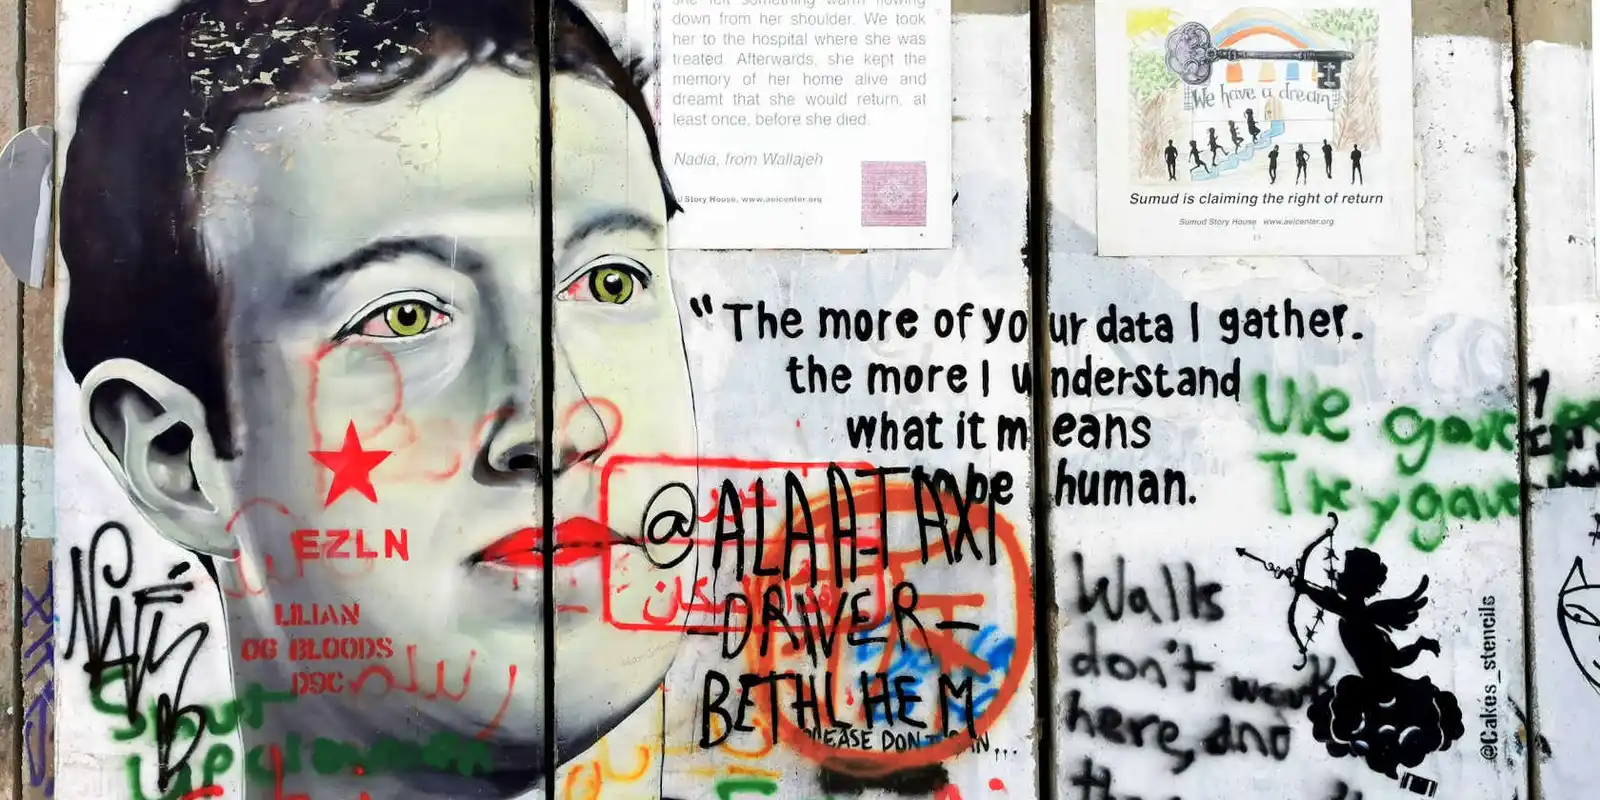 she felt something warm flowing
down from her shoulder. We took
her to the hospital where she was
treated. Afterwards, she kept the
memory of her home alive and
dreamt that she would return, at
least once, before she died.
Nadia, from Wallajeh
Story House, www.aeicenter.org
We have a dream
Sumud is claiming the right of return
Sumud Story House www.aeicenter.org
"The more of your data I gather.
the more I understand
what it means
to be human.
We gave
They gave
@ALAA TAXI
-DRIVER-
BETHLHEM
EASE DON'T
EZLN
LILIAN
OG BLOODS
D9C
Walls
don't work
here, and
@Cakes_stencils